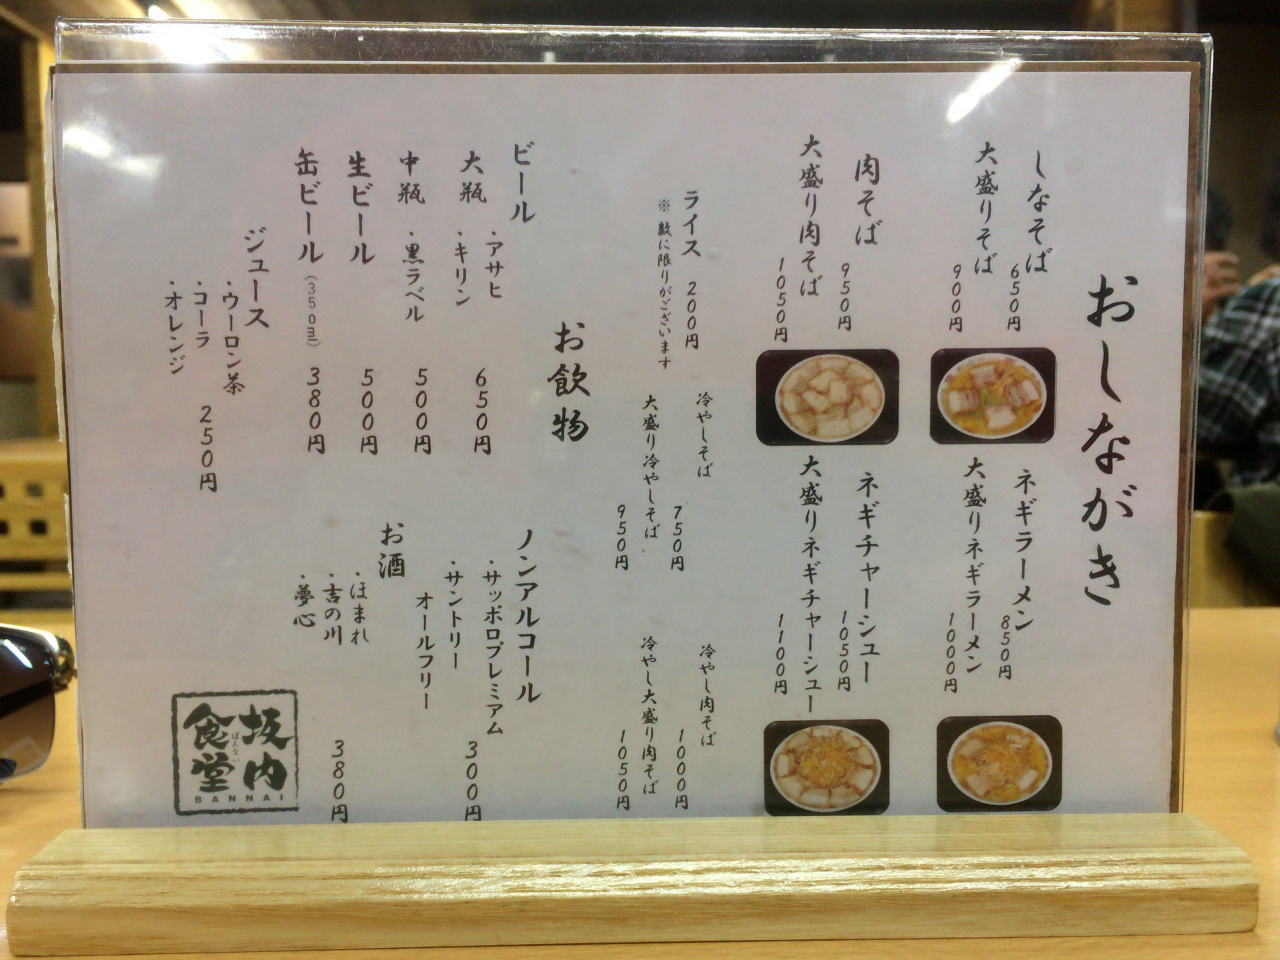 おしながき
しなそば
650円
大盛りそば
900円
肉そば
950円
大盛り肉そば
1050円
ネギラーメン
850円
大盛りネギラーメン
1000円
ネギチャーシュー
1050円
大盛りネギチャーシュー
1100円
ライス 200円
※数に限りがございます
冷やしそば
750円
大盛り冷やしそば
950円
冷やし肉そば
1000円
冷やし大盛り肉そば
1050円
お飲物
ビール
大瓶 ・アサヒ
・キリン
650円
中瓶 ・黒ラベル 500円
生ビール 500円
缶ビール(350ml) 380円
ジュース
・ウーロン茶
・コーラ
・オレンジ
250円
ノンアルコール
・サッポロプレミアム
・サントリー
オールフリー
300円
お酒
・ほまれ
・吉の川
・夢心
380円
坂内
ばんない
食堂
BANNAI